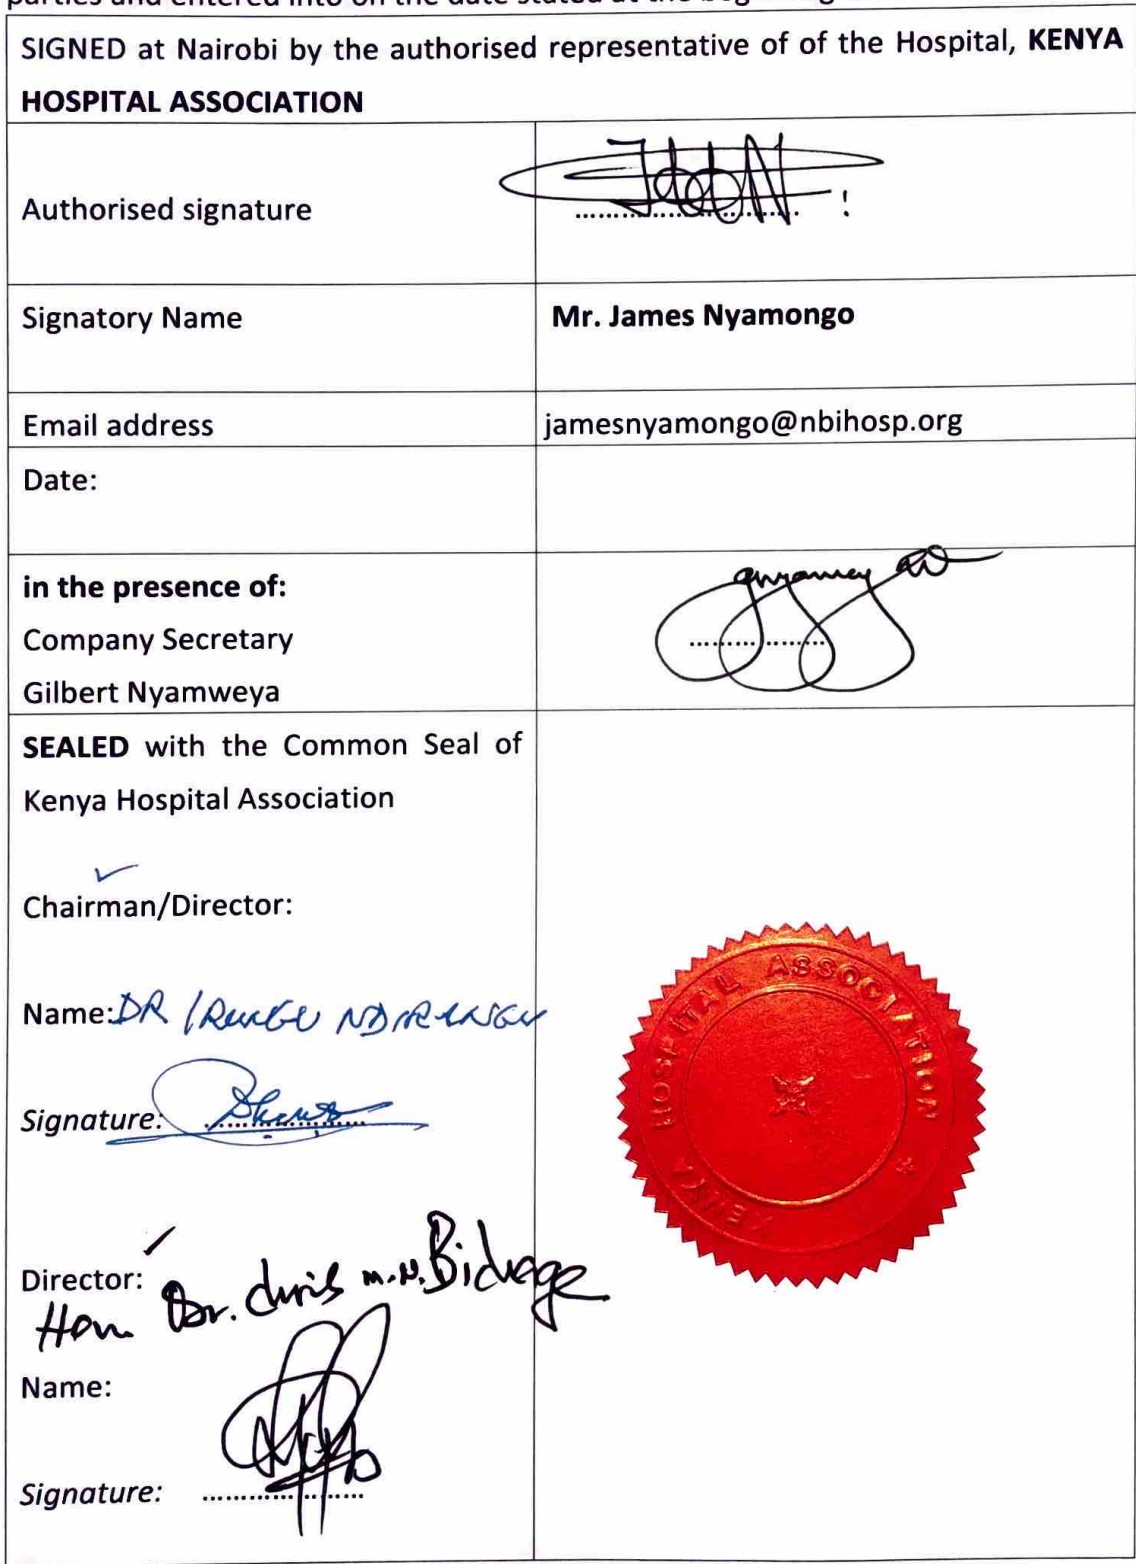 SIGNED at Nairobi by the authorised representative of of the Hospital, KENYA
HOSPITAL ASSOCIATION
Authorised signature
Signatory Name
Mr. James Nyamongo
Email address
jamesnyamongo@nbihosp.org
Date:
in the presence of:
Company Secretary
Gilbert Nyamweya
SEALED with the Common Seal of
Kenya Hospital Association
Chairman/Director:
Name: DR IRUNGU NDIRANGU
Signature:
Director:
Hon Dr. Chris M.N. Bichage
Name:
Signature:
KENYA HOSPITAL ASSOCIATION